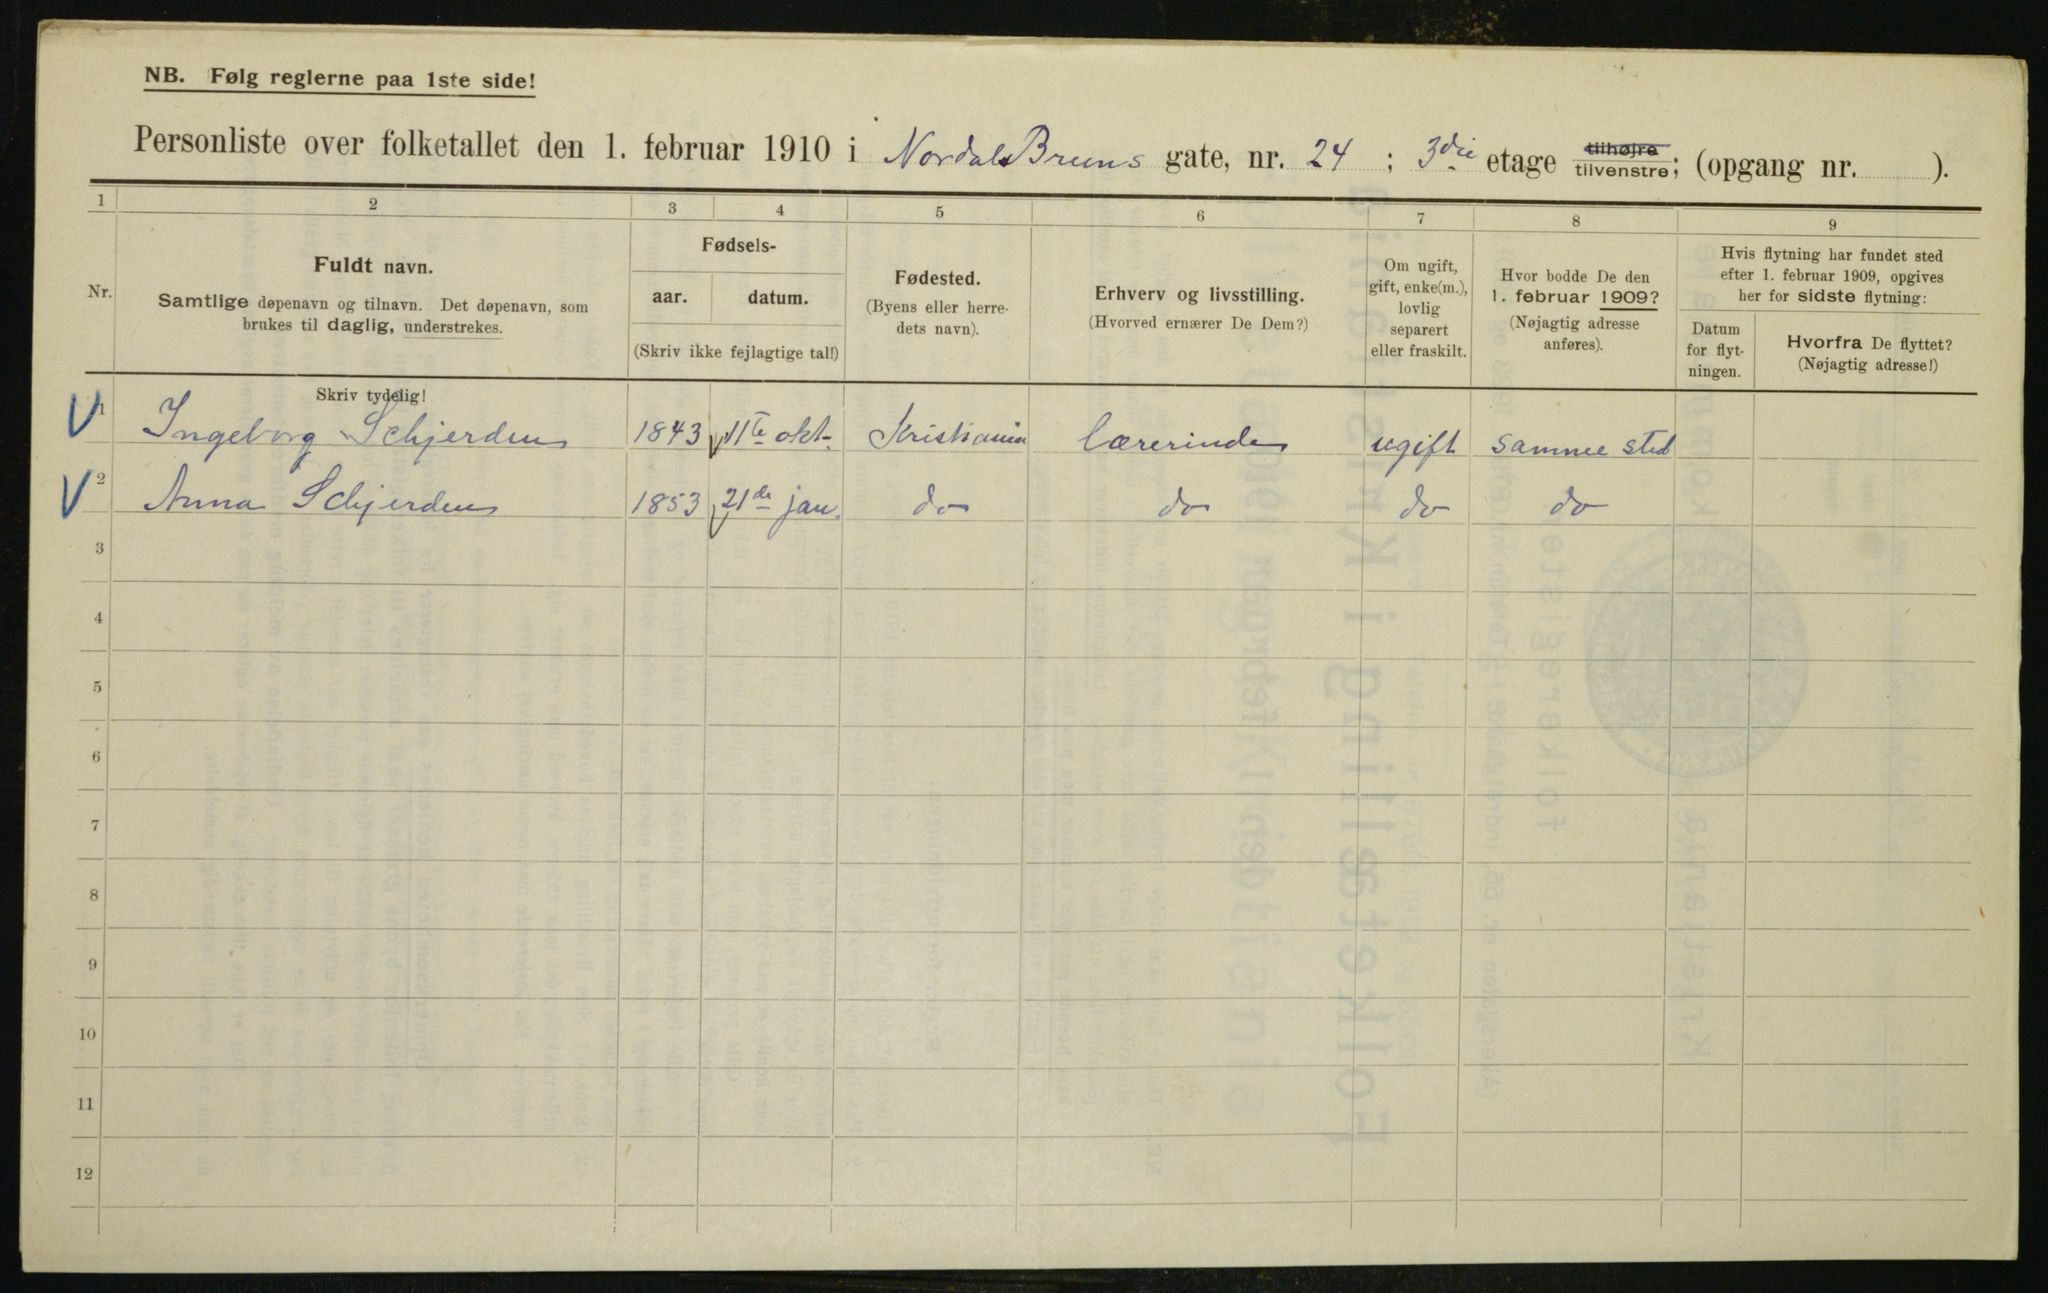 NB. Følg reglerne paa 1ste side!
Personliste over folketallet den 1. februar 1910 i Nordal Bruns gate, nr. 24 ; 3die etage tilhøjre tilvenstre; (opgang nr. ).
1 2 3 4 5 6 7 8 9
Nr.
Fuldt navn.
Samtlige døpenavn og tilnavn. Det døpenavn, som
brukes til daglig, understrekes.
Fødsels-
aar. datum.
(Skriv ikke fejlagtige tal!)
Fødested.
(Byens eller herre-
dets navn).
Erhverv og livsstilling.
(Hvorved ernærer De Dem?)
Om ugift,
gift, enke(m.),
lovlig
separert
eller fraskilt.
Hvor bodde De den
1. februar 1909?
(Nøjagtig adresse
anføres).
Hvis flytning har fundet sted
efter 1. februar 1909, opgives
her for sidste flytning:
Datum
for flyt-
ningen.
Hvorfra De flyttet?
(Nøjagtig adresse!)
Skriv tydelig!
1 Ingeborg Schjerden 1843 11te okt. Kristiania Lærerinde ugift samme sted
2 Anna Schjerden 1853 21de jan. do do do do
3
4
5
6
7
8
9
10
11
12